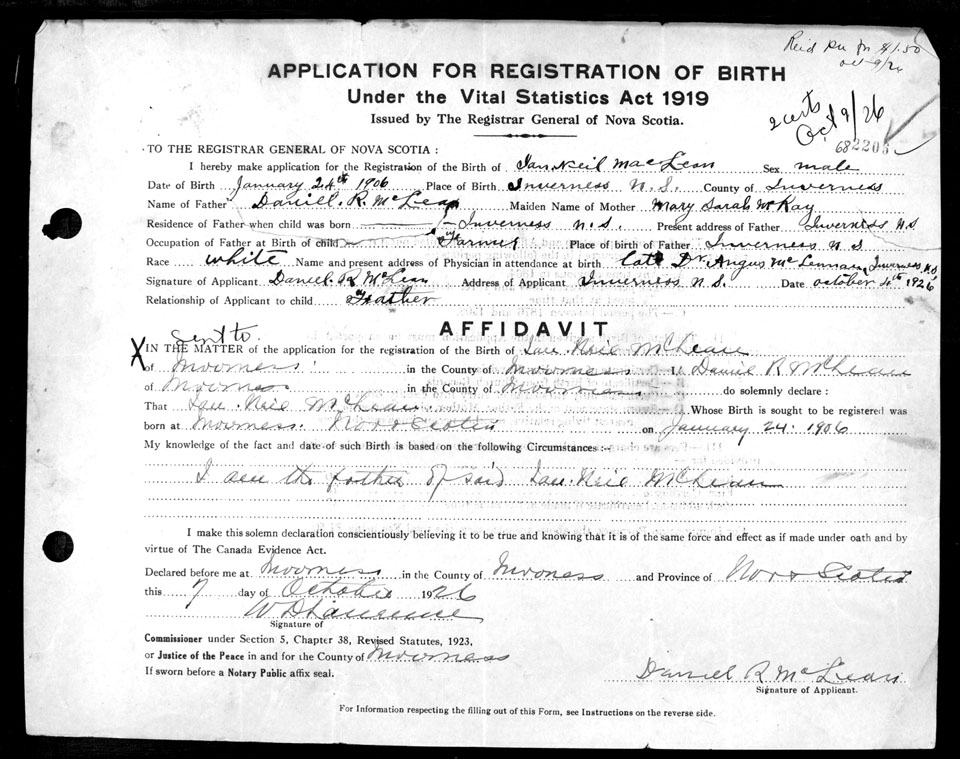 Oct 9/26
APPLICATION FOR REGISTRATION OF BIRTH
Under the Vital Statistics Act 1919
Issued by The Registrar General of Nova Scotia.
2 certs
Oct 9/26
TO THE REGISTRAR GENERAL OF NOVA SCOTIA :
I hereby make application for the Registration of the Birth of Ian Neil MacLean Sex male
Date of Birth January 24th 1906 Place of Birth Inverness N.S. County of Inverness
Name of Father Daniel. R. McLean Maiden Name of Mother Mary Sarah McKay
Residence of Father when child was born Inverness N.S. Present address of Father Inverness N.S
Occupation of Father at Birth of child Farmer Place of birth of Father Inverness N S
Race white Name and present address of Physician in attendance at birth late Dr. Angus McLennan, Inverness N.S
Signature of Applicant Daniel. R McLean Address of Applicant Inverness N.S. Date october 4th 1926
Relationship of Applicant to child Feather
AFFIDAVIT
Sent to
X IN THE MATTER of the application for the registration of the Birth of Ian Neil McLean
of Inverness in the County of Inverness I Daniel R McLean
of Inverness in the County of Inverness do solemnly declare :
That Ian Neil McLean Whose Birth is sought to be registered was
born at Inverness. Nova Scotia on January 24. 1906
My knowledge of the fact and date of such Birth is based on the following Circumstances :-
I am the father of said Ian Neil McLean
I make this solemn declaration conscientiously believing it to be true and knowing that it is of the same force and effect as if made under oath and by
virtue of The Canada Evidence Act.
Declared before me at Inverness in the County of Inverness and Province of Nova Scotia
this 7 day of October 1926
Signature of
Commissioner under Section 5, Chapter 38, Revised Statutes, 1923,
or Justice of the Peace in and for the County of Inverness
If sworn before a Notary Public affix seal.
Daniel R McLean
Signature of Applicant.
For Information respecting the filling out of this Form, see Instructions on the reverse side.